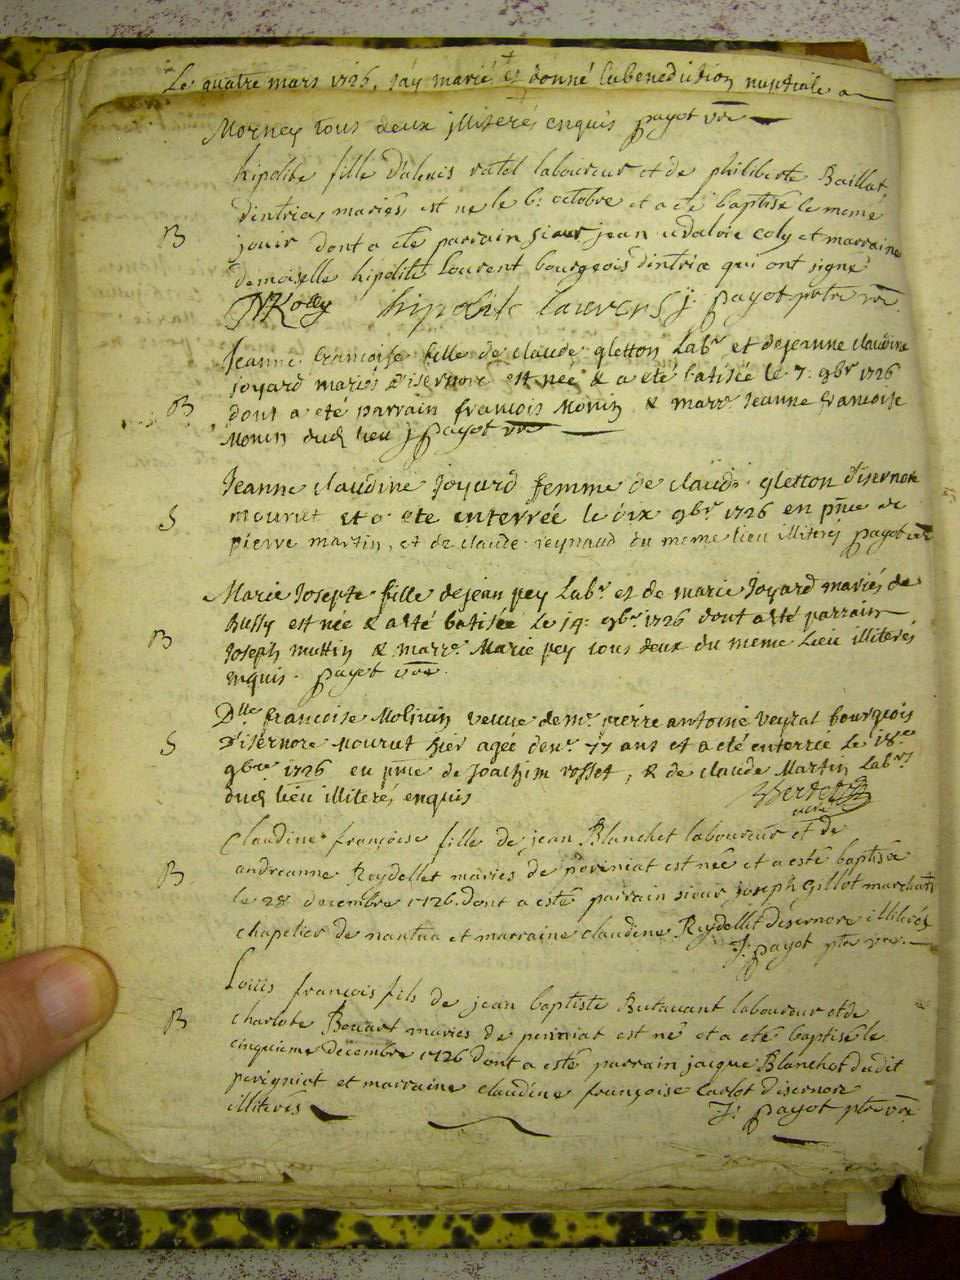 Le quatre mars 1726, jay marié et donné la benediction nuptiale a
Morney tous deux illiterés enquis payot vre
hipolite fille d'alexis ratel laboureur et de philiberte Baillat
dintria, mariés est ne le 6: octobre et a eté baptisé le meme
B
jour dont a eté parrain sieur jean udalric coly et marraine
demoiselle hipolite Laurent bourgeois dintria qui ont signé
Kolly hipolite laurens j. payot ptre vre
Jeanne francoise fille de claude gletton Labr et de jeanne claudine
joyard mariés disernore est née & a eté batisée le 7. 9br 1726
B
dont a eté parrain francois Monin & marr. Jeanne francoise
Monin dud lieu j payot vre
Jeanne claudine joyard femme de claude gletton disernore
S
mourut et a eté enterrée le dix 9br 1726 en pnce de
pierre martin, et de claude reynaud du meme lieu illiterés payot vre
Marie Josepte fille de jean pey Labr et de marie Joyard mariés de
Bussy est née & a eté batisée le 14: 9br 1726 dont a eté parrain
B
Joseph muttin & marre Marie pey tous deux du meme Lieu illiterés
enquis. payot vre.
Dlle francoise Molinin veuve de mr pierre antoine veyrat bourgeois
S
disernore mourut hier agée denv. 77 ans et a eté enterrée le 18e
9bre 1726 en pnce de Joachim rosset, & de claude Martin Labrs
dud lieu illiterés enquis
curé
Claudine françoise fille de jean Blanchet laboureur et de
B
andreanne Reydellet mariés de periniat est née et a esté baptisée
le 28 decembre 1726. dont a esté parrain sieur joseph Gillot marchant
chapelier de nantua et marraine claudine Reydellet disernore illiterés
J: payot ptre vre.
Louis françois fils de jean baptiste Butavant laboureur et de
B
charlote Bouart mariés de periniat est né et a eté baptisé le
cinquieme decembre 1726 dont a esté parrain jacque Blanchet dudit
perigniat et marraine claudine françoise Carlot disernore
illiterés
J: payot ptre vre